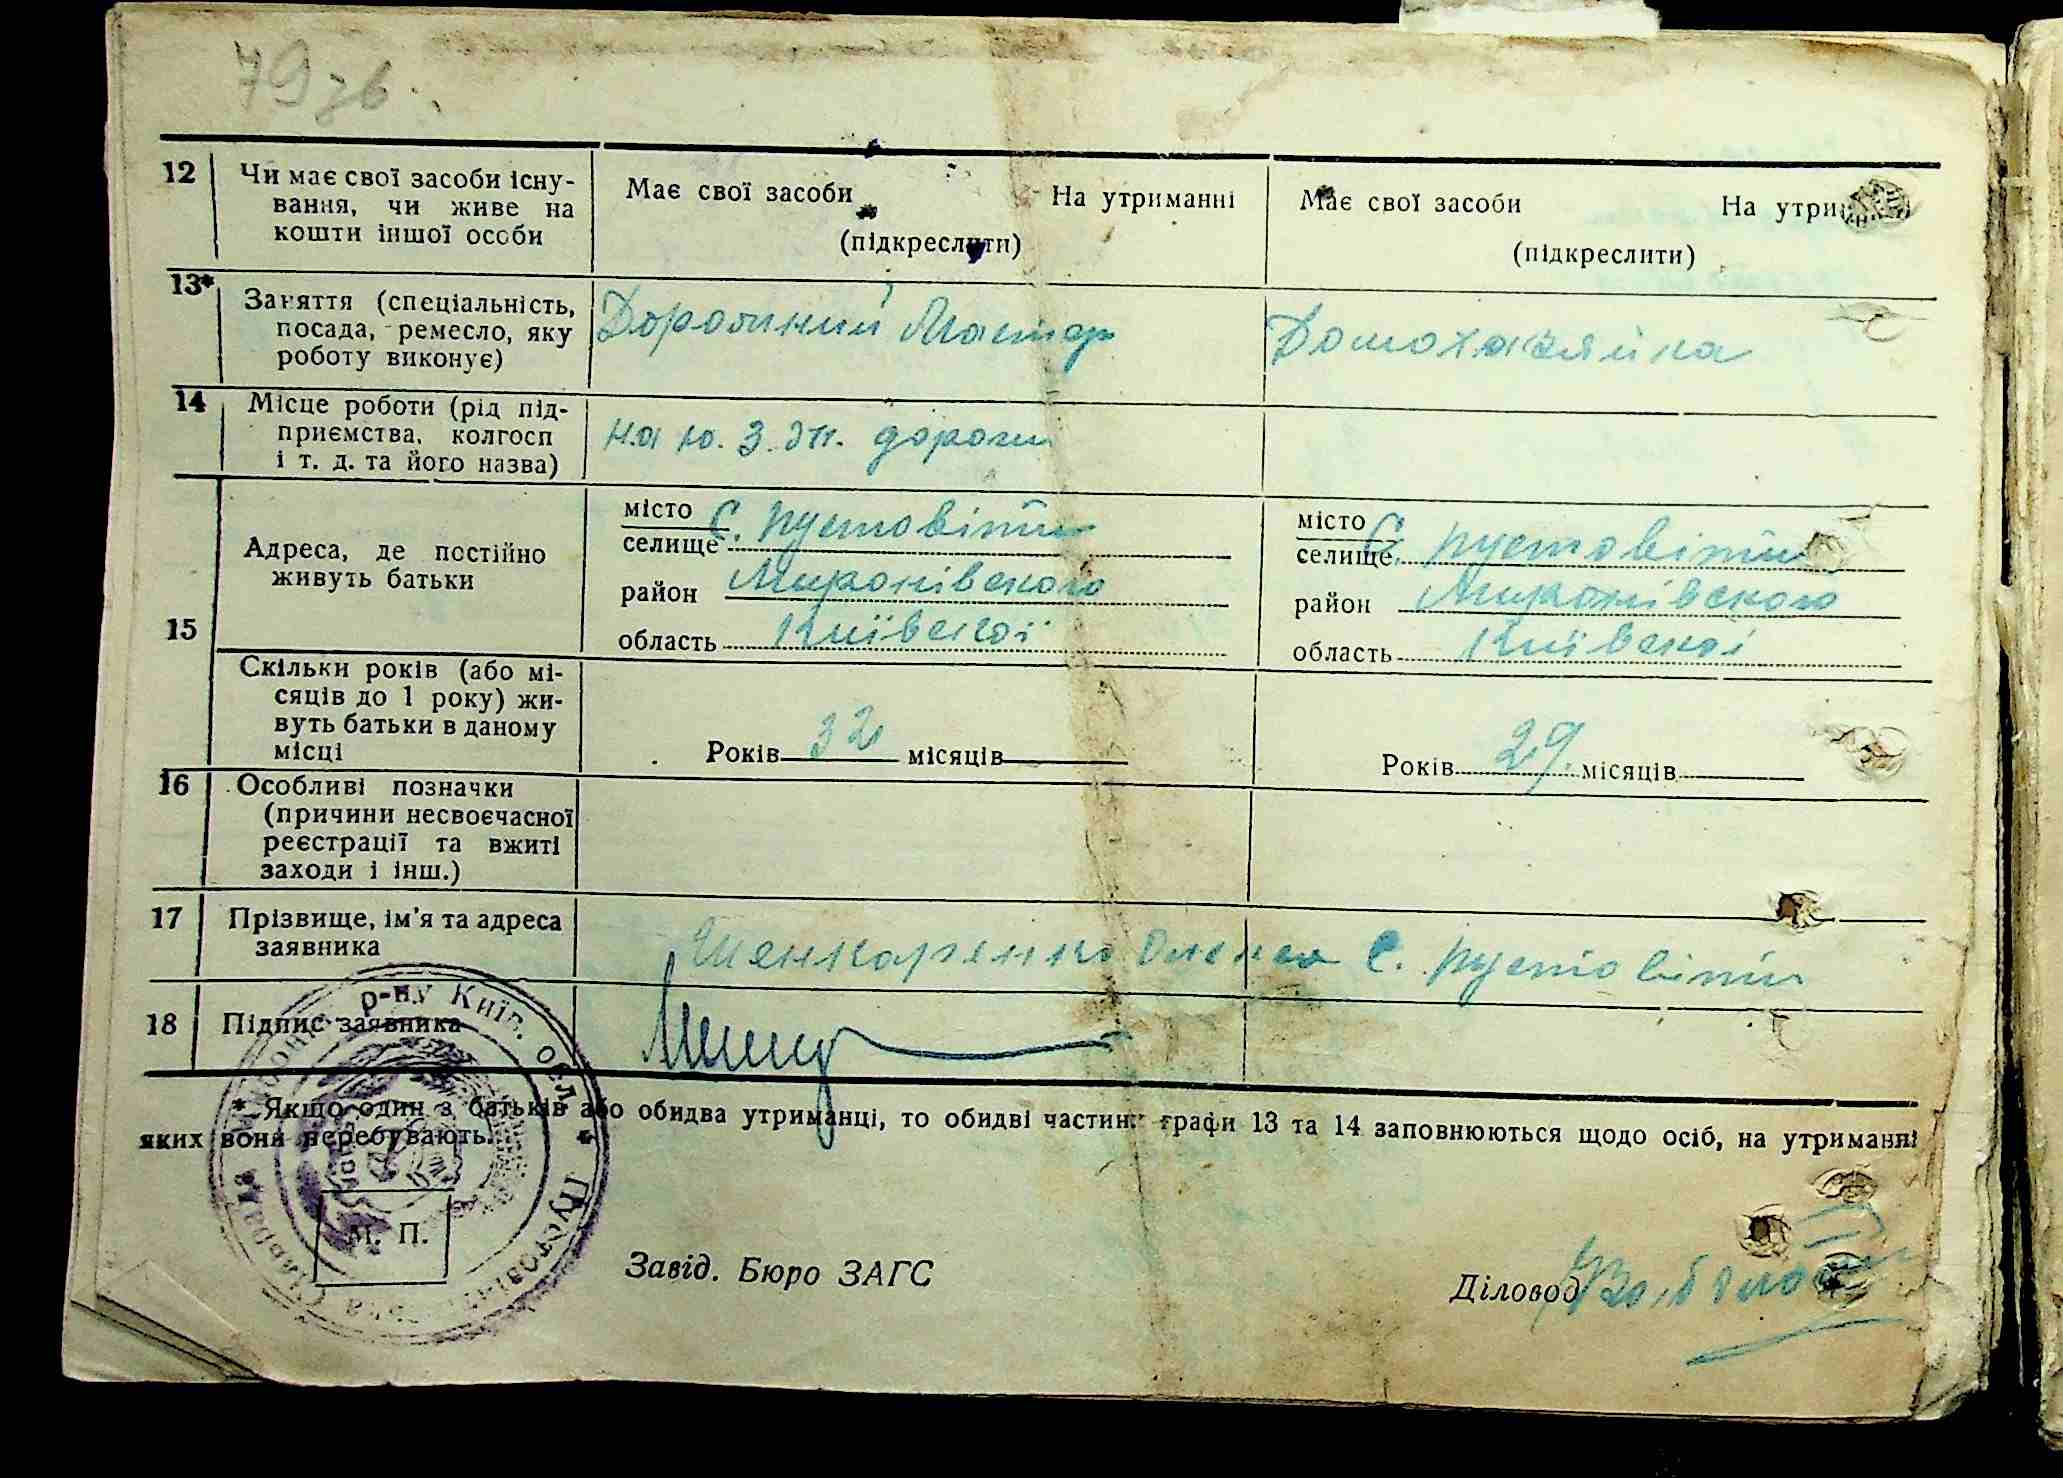 79 зв.
12 Чи має свої засоби існу-
вання, чи живе на
кошти іншої особи
Має свої засоби На утриманні
(підкреслити)
Має свої засоби На утри
(підкреслити)
13* Заняття (спеціальність,
посада, ремесло, яку
роботу виконує)
Дорожний Мастер
Домохазяйка
14 Місце роботи (рід під-
приємства, колгосп
і т. д. та його назва)
на ю. з. ж. дороги
15 Адреса, де постійно
живуть батьки
місто
селище С. Пустовіти
район Миронівского
область Київскої
місто
селище С. Пустовіти
район Миронівского
область Київскоі
Скільки років (або мі-
сяців до 1 року) жи-
вуть батьки в даному
місці
Років 32 місяців
Років 29. місяців
16 Особливі позначки
(причини несвоєчасної
реєстрації та вжиті
заходи і інш.)
17 Прізвище, ім'я та адреса
заявника
Шенкаренко Олекса С. Пустовіти
18 Підпис заявника
* Якщо один з батьків або обидва утриманці, то обидві частини графи 13 та 14 заповнюються щодо осіб, на утриманні
яких вони перебувають.
р-ну Київ. обл. *
М. П.
Завід. Бюро ЗАГС
Діловод